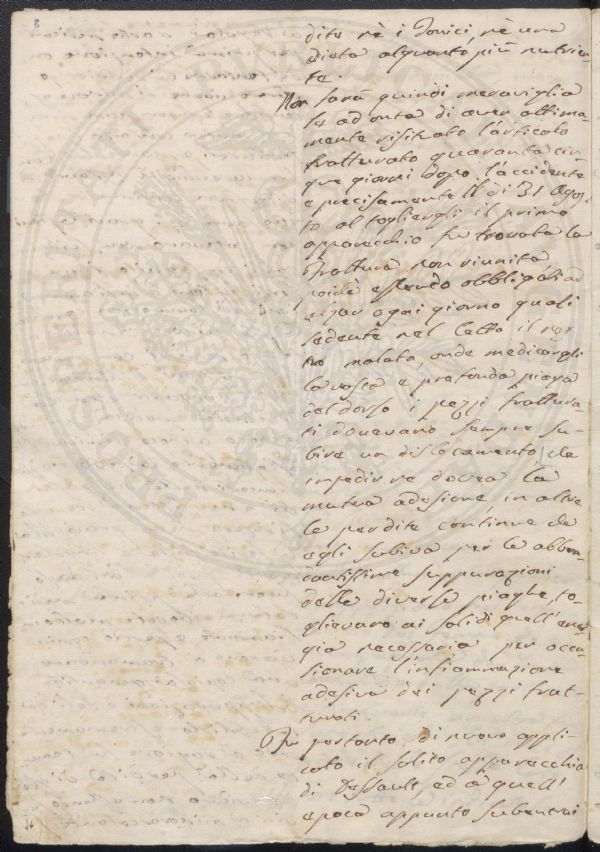 8
dite nè i Tonici, nè una
dieta alquanto più nutrien-
te.
Non sarà quindi meraviglia
se ad onta di aver ottima-
mente situato l'articolo
fratturato quaranta cin-
que giorni dopo l'accidente
e precisamente il dì 31 Agos-
to al togliergli il primo
apparechio fu trovata la
frattura non riunita
poichè essendo obbligati ad
alzar ogni giorno quasi
sedente nel letto il
malato, onde medicargli
la vasta e profonda piaga
del dorso i pezzi frattura-
ti dovevano sempre su-
bire un dislocamento, che
impedirne dovea la
mutua adesione in oltre
le perdite continue che
egli subiva per le abbon-
dantissime suppurazioni
delle diverse piaghe, to-
glievano ai solidi quell'ener-
gia necessaria per occa-
sionare l'infiammazione
adesiva dei pezzi frat-
turati.
Fu pertanto di nuovo appli-
cato il solito apparecchio
di Dessault, ed a quell'
epoca appunto subentrai